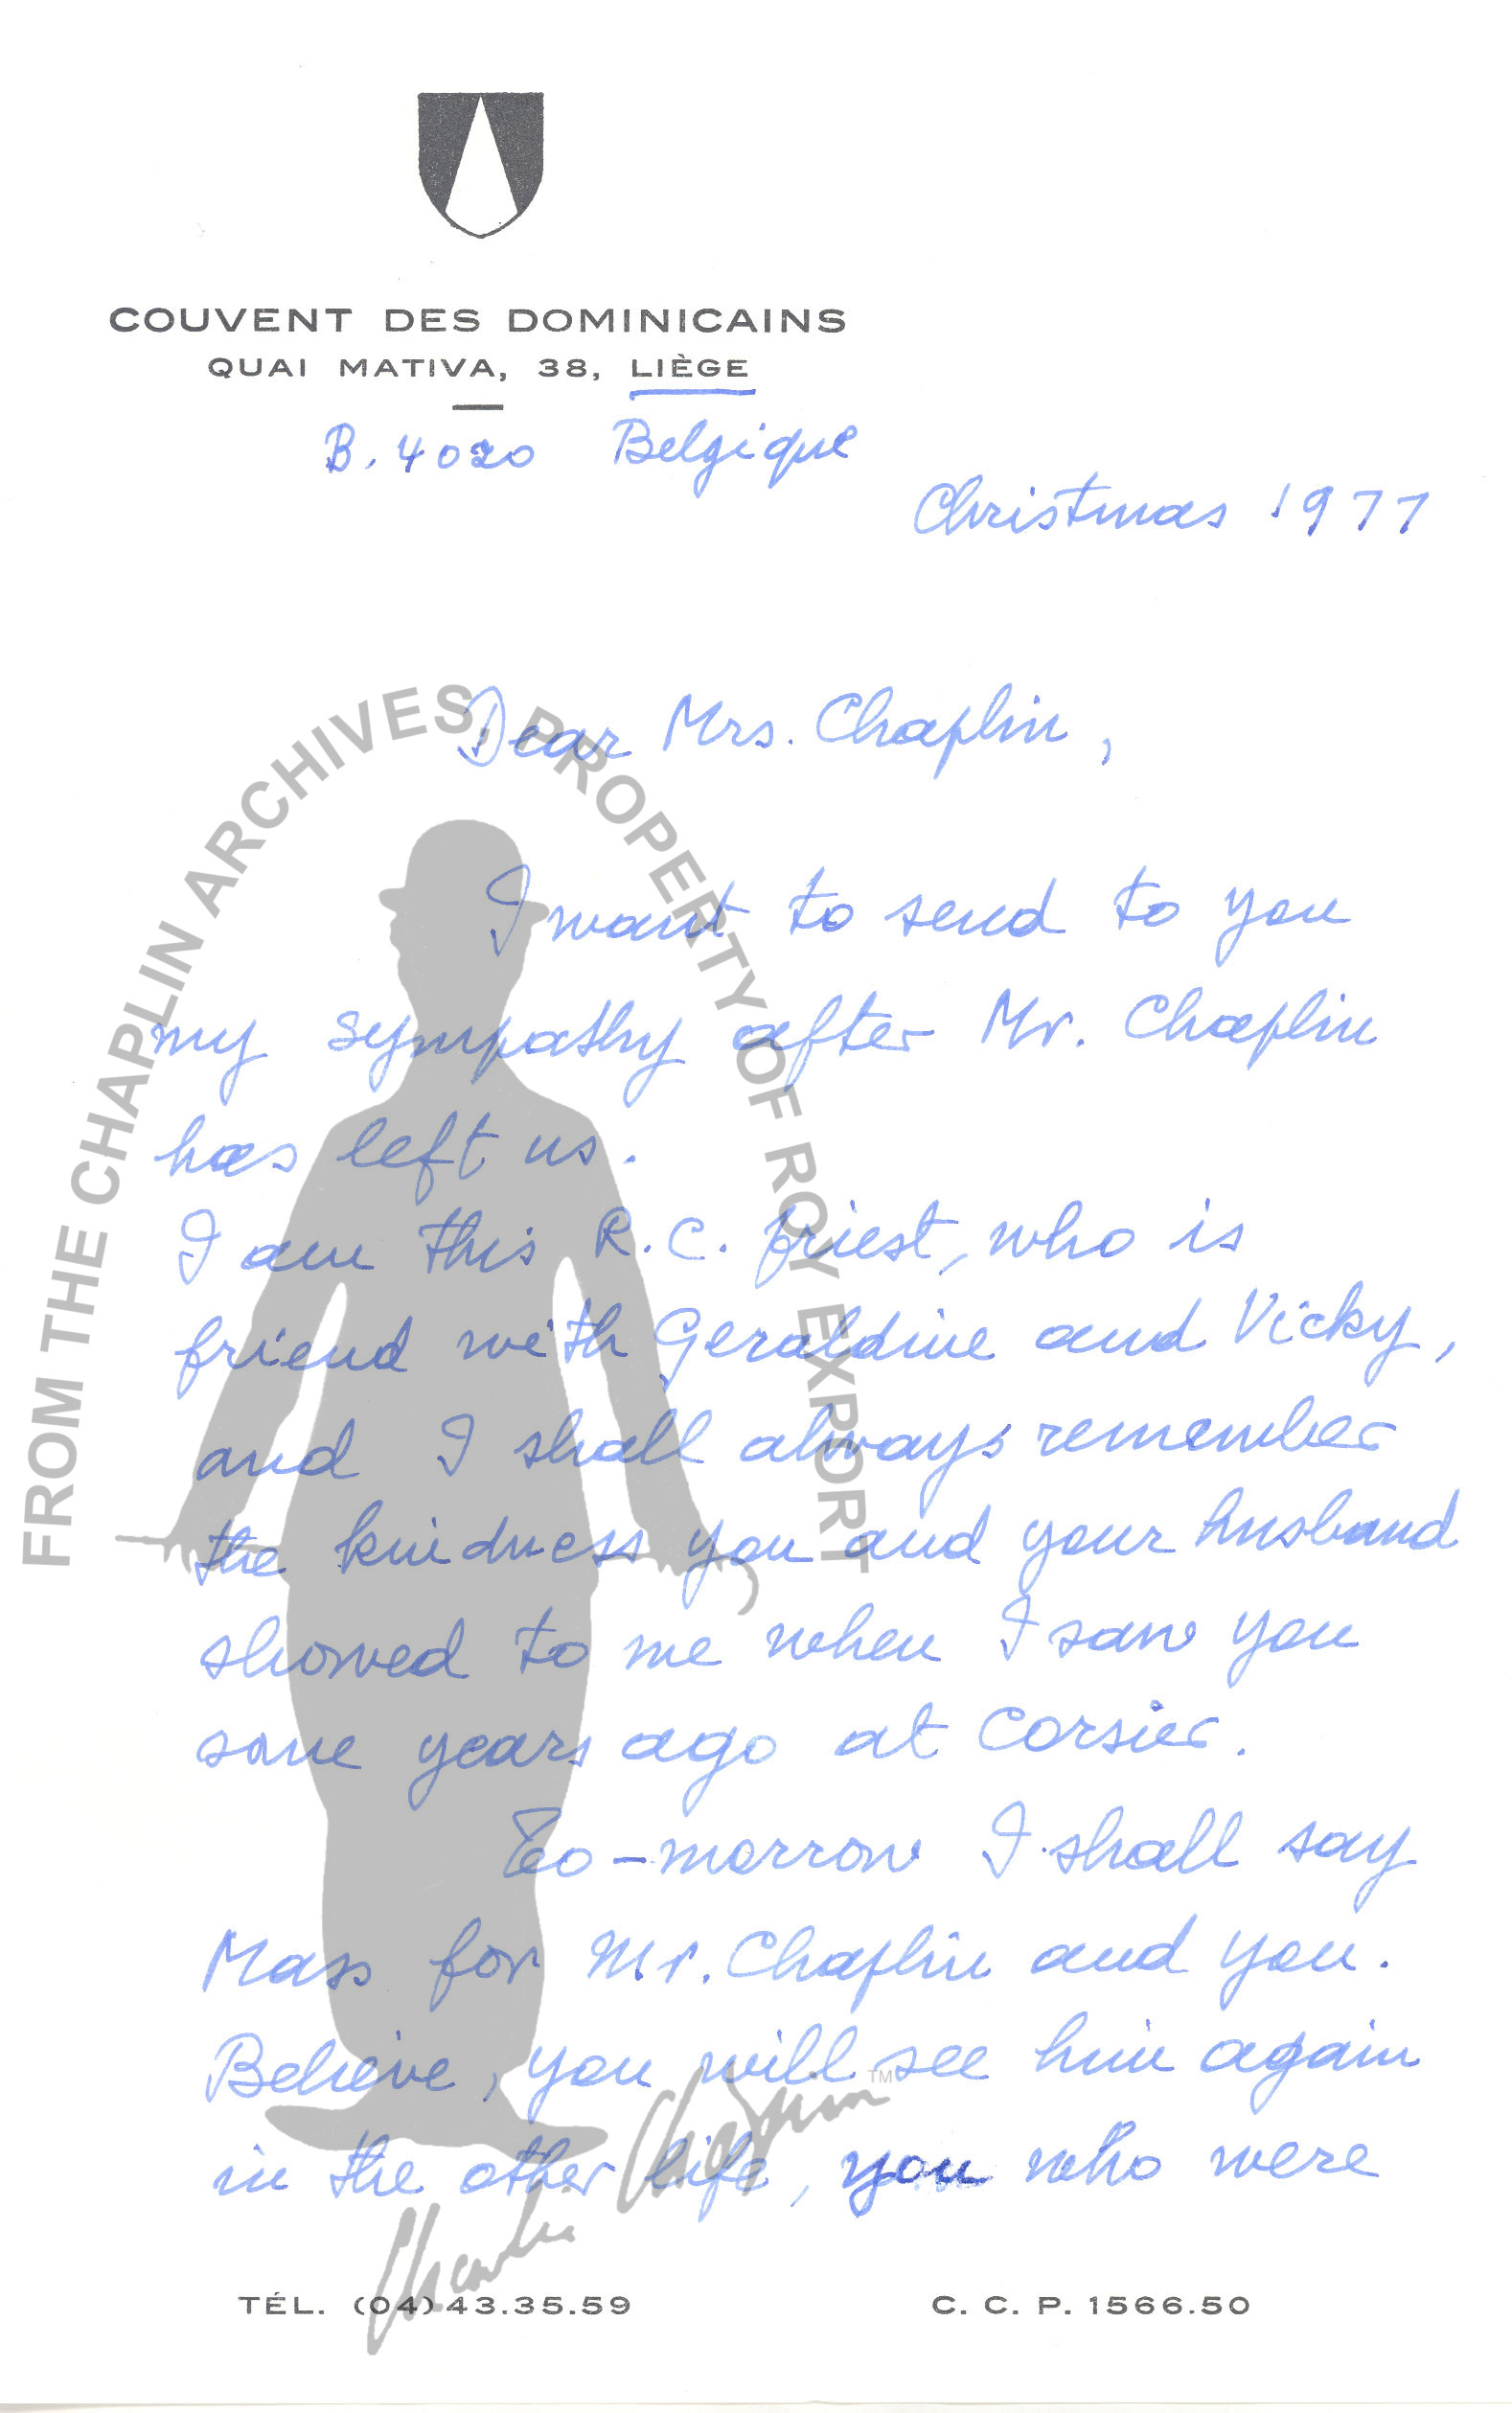 COUVENT DES DOMINICAINS
QUAI MATIVA, 38, LIÈGE
B. 4020 Belgique
Christmas 1977
Dear Mrs. Chaplin,
I want to send to you
my sympathy after Mr. Chaplin
has left us.
I am this R.C. priest, who is
friend with Geraldine and Vicky,
and I shall always remember
the kindness you and your husband
showed to me when I saw you
some years ago at Corsier.
To-morrow I shall say
Mass for Mr. Chaplin and you.
Believe, you will see him again
in the other life, you who were
TÉL. (04) 43.35.59 C. C. P. 1566.50
FROM THE CHAPLIN ARCHIVES, PROPERTY OF ROY EXPORT
Charlie Chaplin TM